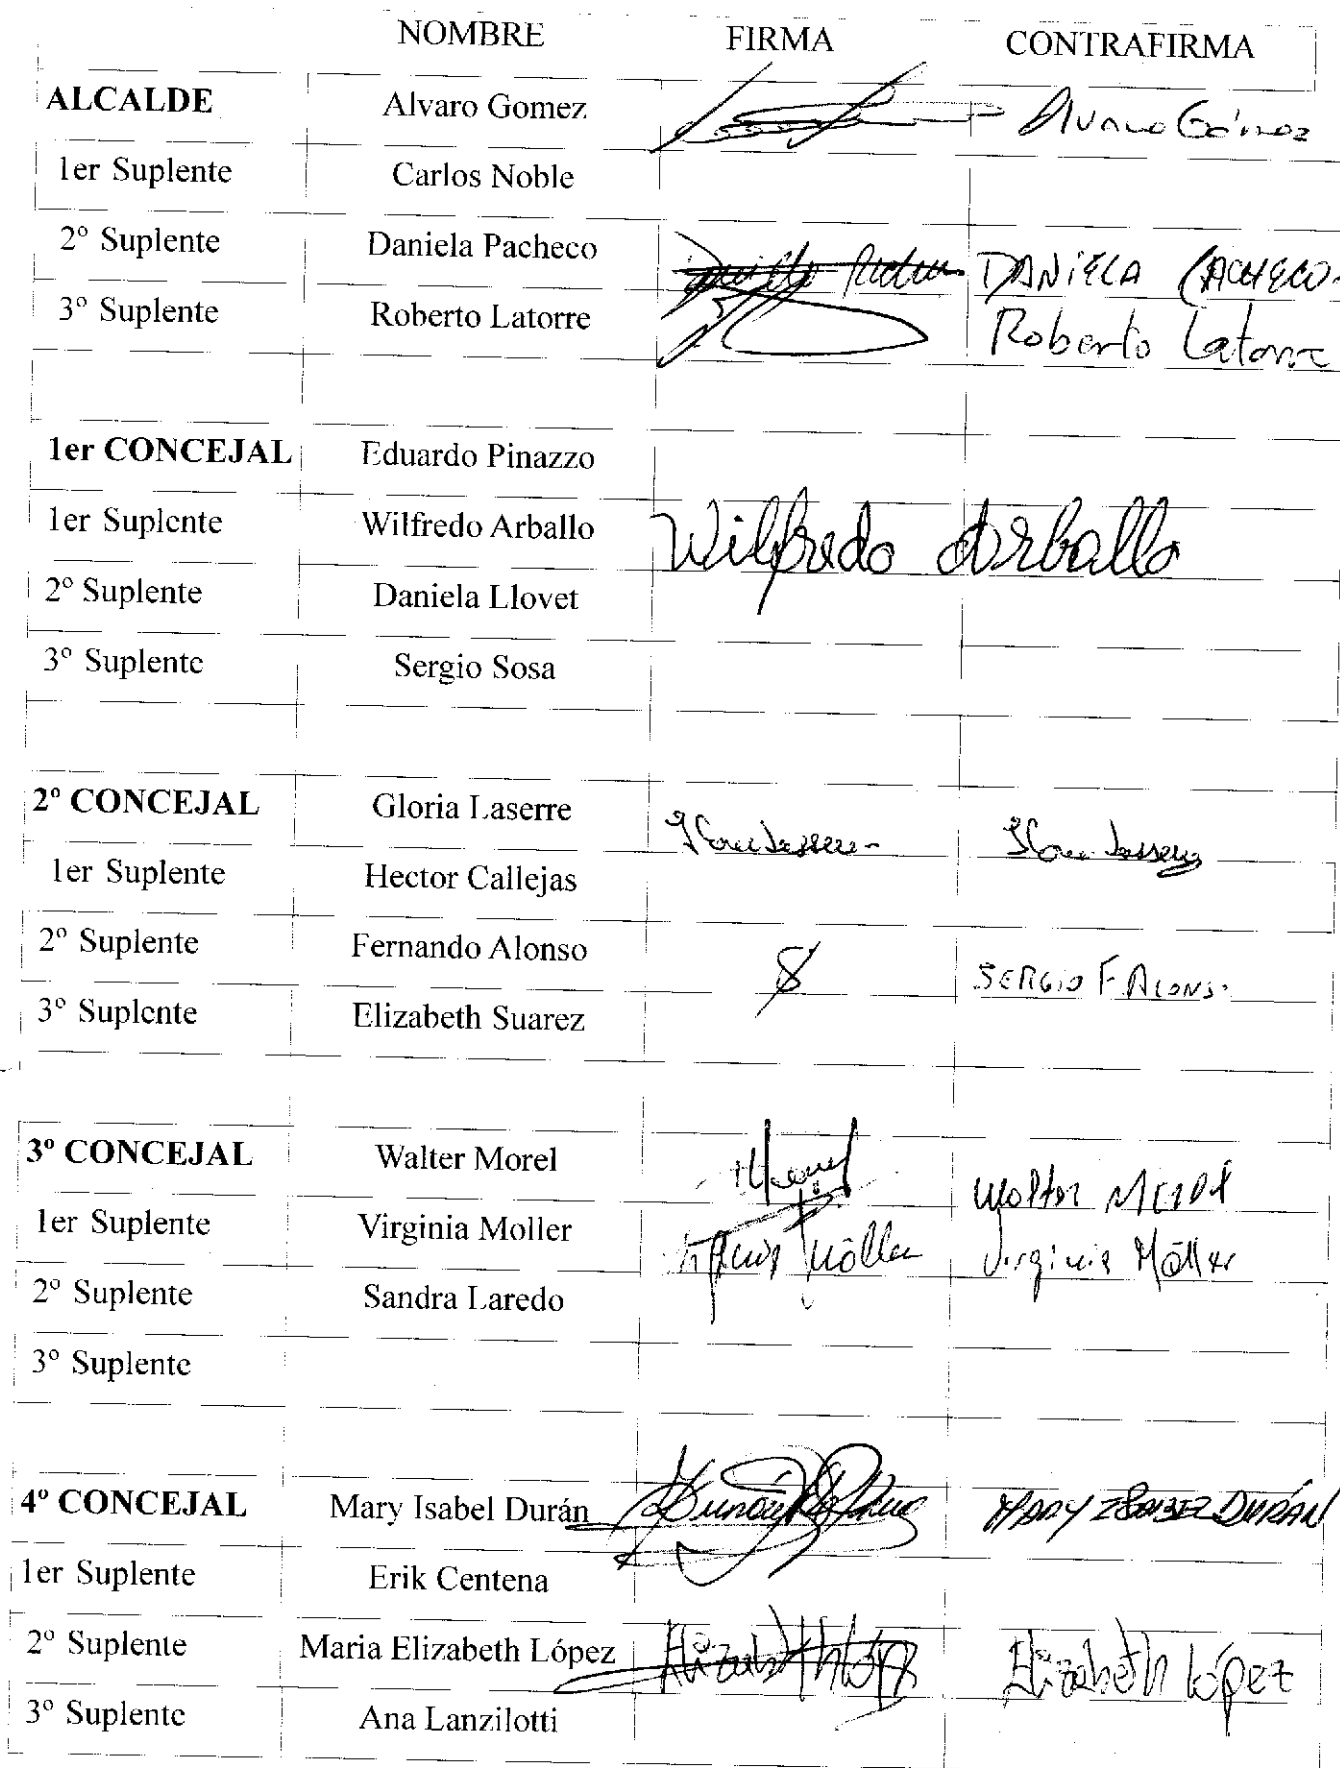 NOMBRE FIRMA CONTRAFIRMA
ALCALDE Alvaro Gomez Alvaro Gómez
1er Suplente Carlos Noble
2º Suplente Daniela Pacheco DANIELA PACHECO
3º Suplente Roberto Latorre Roberto Latorre
1er CONCEJAL Eduardo Pinazzo
1er Suplente Wilfredo Arballo Wilfredo Arballo
2º Suplente Daniela Llovet
3º Suplente Sergio Sosa
2º CONCEJAL Gloria Laserre
1er Suplente Hector Callejas
2º Suplente Fernando Alonso SERGIO F ALONSO
3º Suplente Elizabeth Suarez
3º CONCEJAL Walter Morel Walter Morel
1er Suplente Virginia Moller Virginia Möller
2º Suplente Sandra Laredo
3º Suplente
4º CONCEJAL Mary Isabel Durán MARY ISABEL DURÁN
1er Suplente Erik Centena
2º Suplente Maria Elizabeth López Elizabeth López Elizabeth López
3º Suplente Ana Lanzilotti